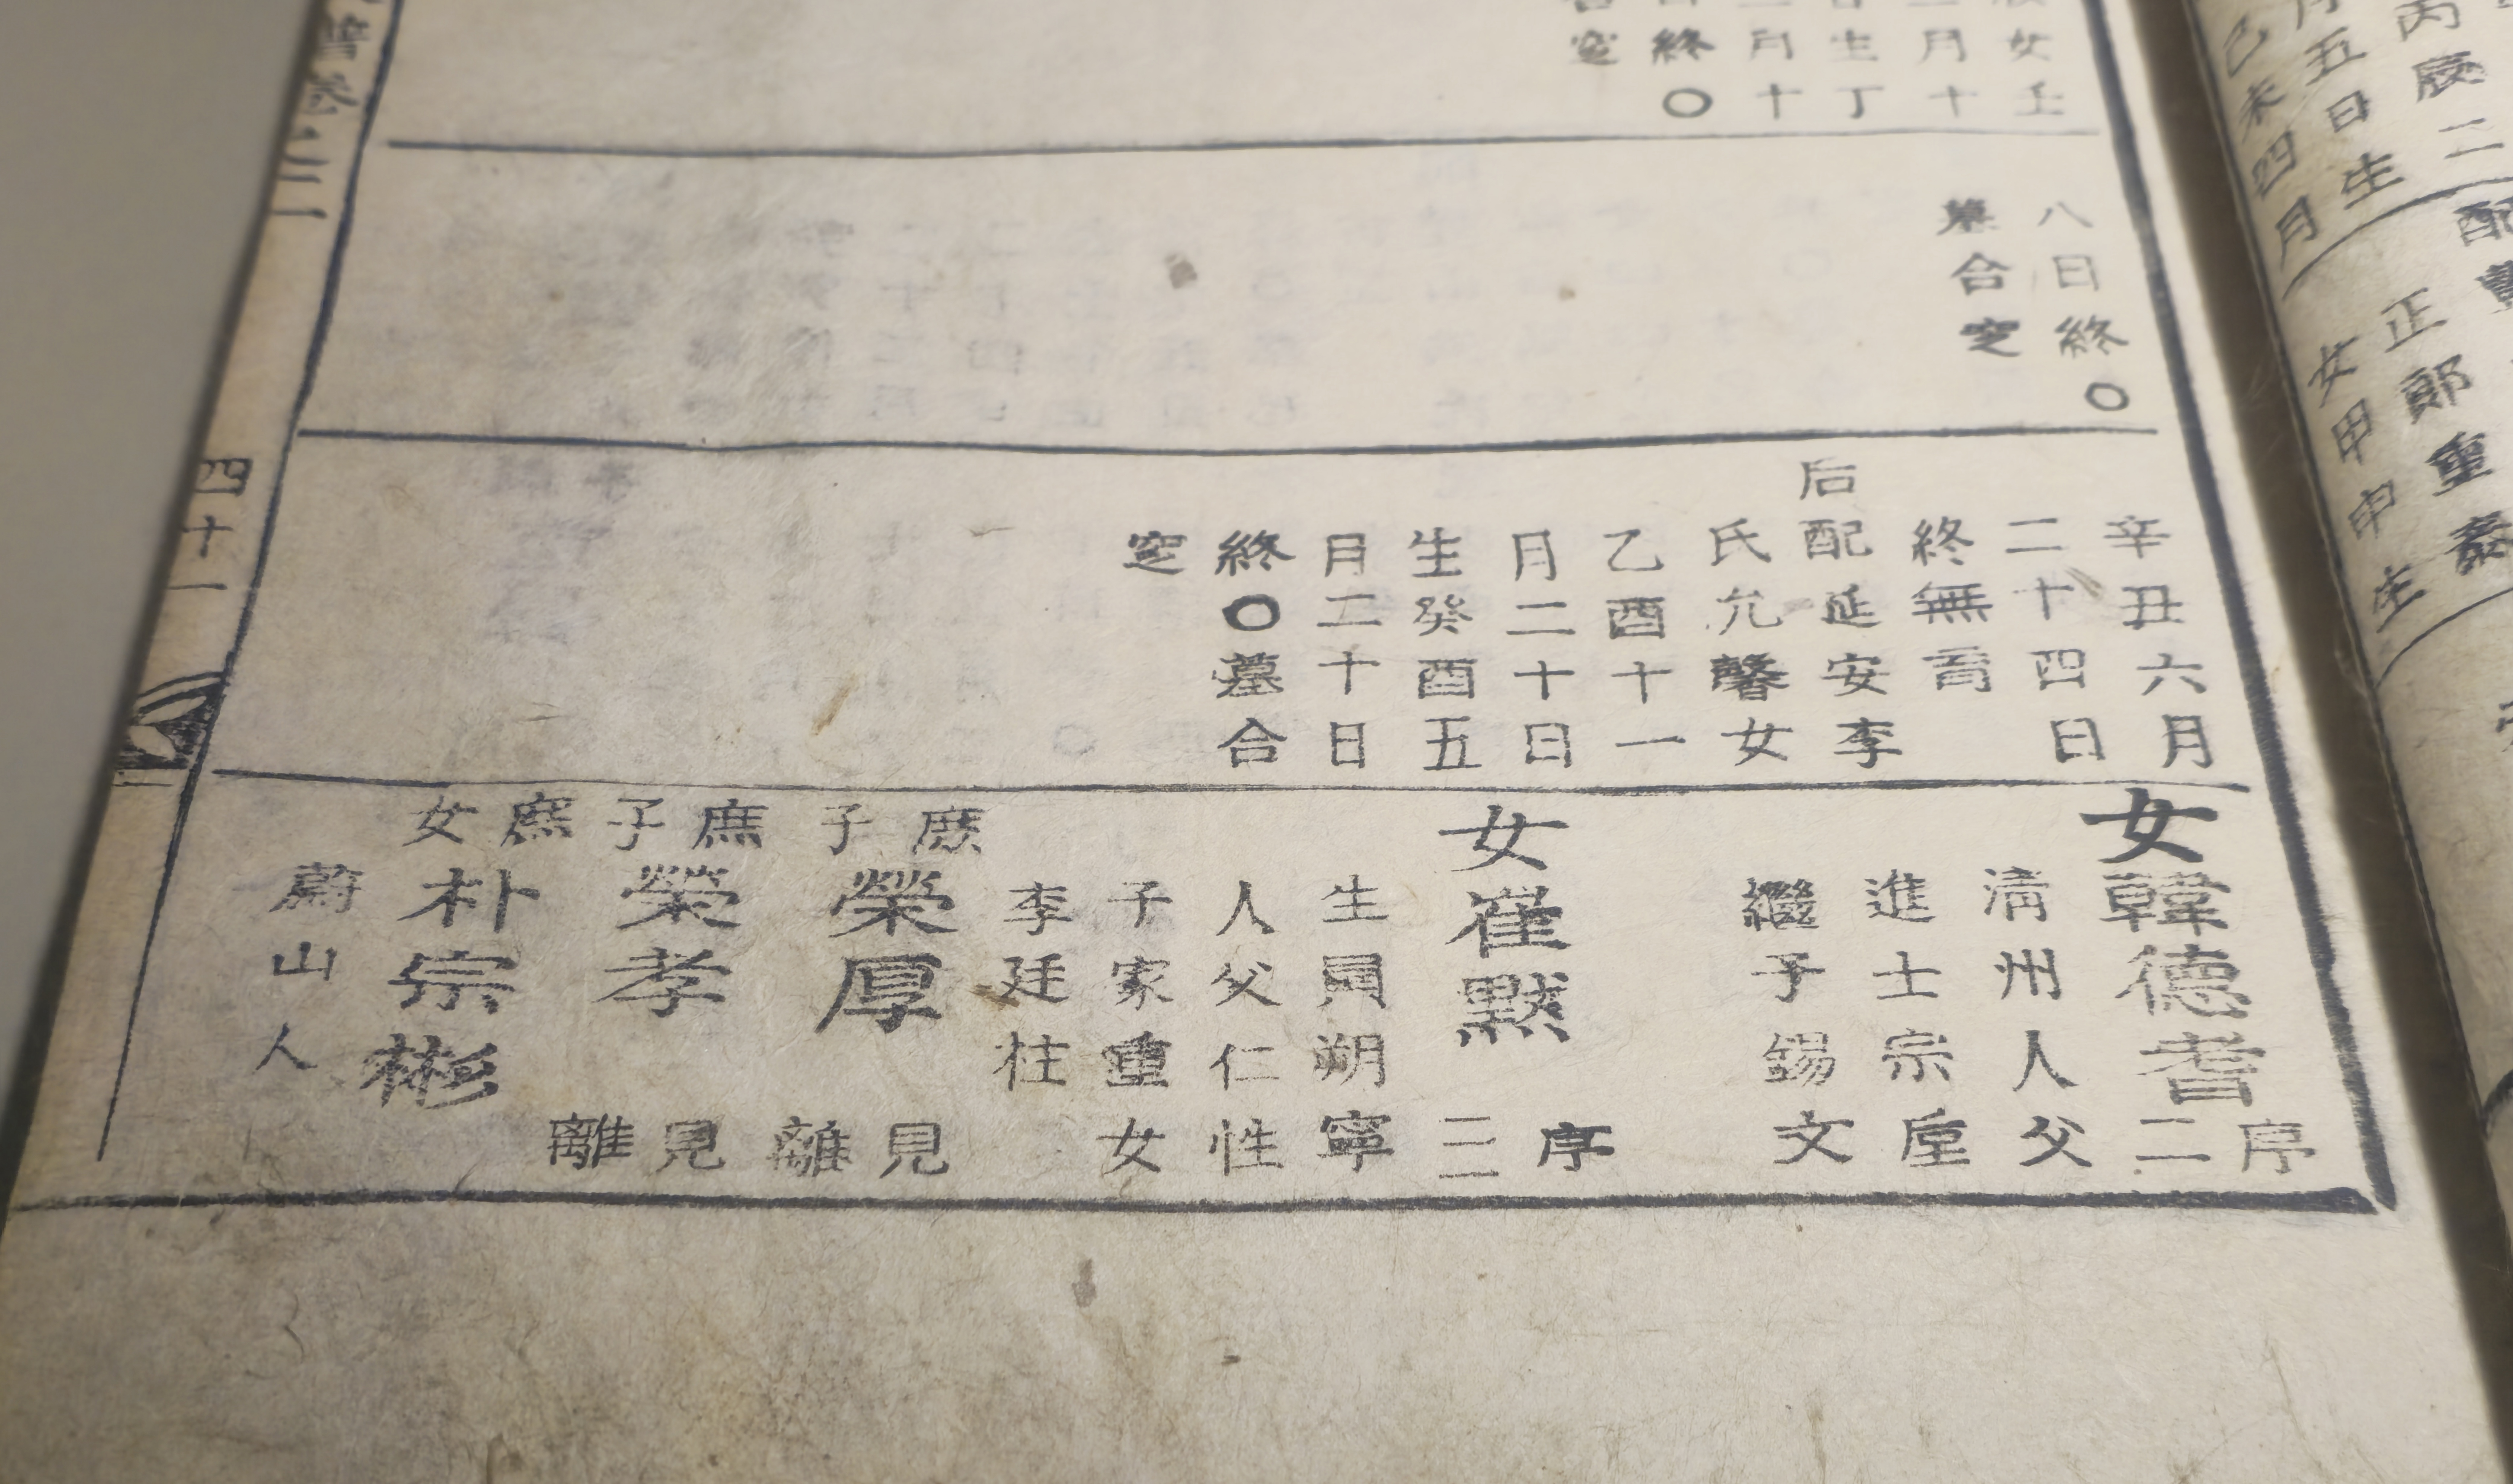 丙辰二
月五日生
己未四月
配
正郎重泰
女甲申生
女壬
二月十
生丁
二月十
日終〇
合窆
八日終〇
墓合窆
辛丑六月
二十四日
終無育
后配延安李
氏允馨女
乙酉十一
月二十日
生癸酉五
月二十日
終〇墓合
窆
女韓德耆
序二
清州人父
進士宗垕
繼子錫文
女崔黙
序三
生員朔寧
人父仁性
子家重女
李廷柱
庶子榮厚
見離
庶子榮孝
見離
庶女朴宗彬
蔚山人
譜卷之二
四十一